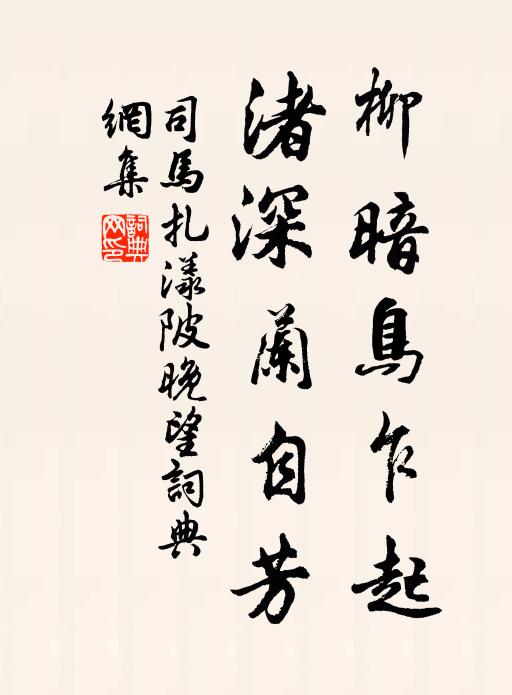 柳暗鳥乍起
渚深蘭自芳
司馬扎漾陂晚望詞典
網集
詞典网印